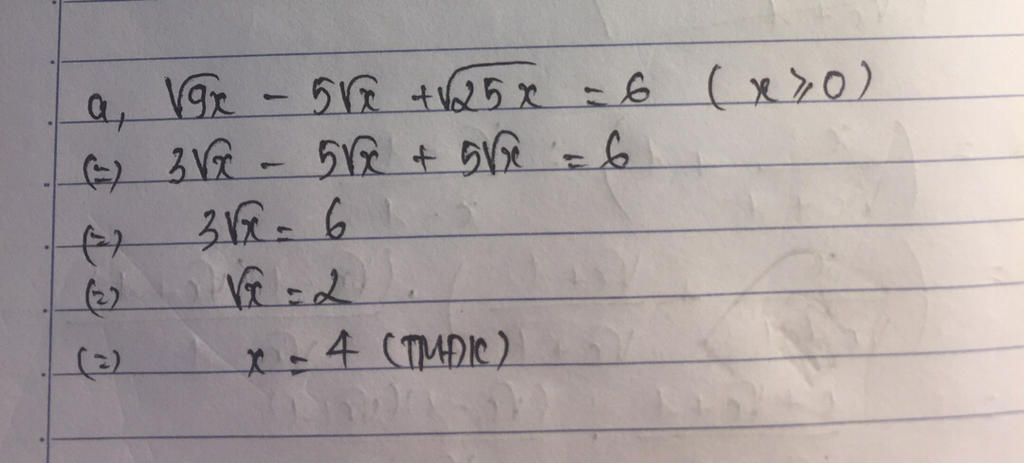 a, √9x - 5√x + √25x = 6 ( x ⩾ 0 )
(=) 3√x - 5√x + 5√x = 6
(=) 3√x = 6
(=) √x = 2
(=) x = 4 (TMĐK)